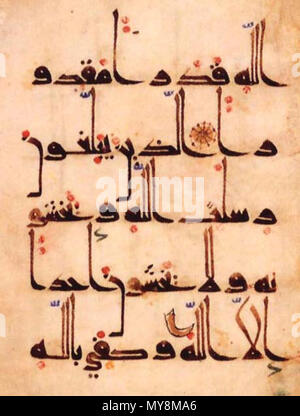 الله قدرا مقدو
را الذين يبلغون
رسلت الله ويخشو
نه ولا يخشون احدا
الا الله وكفى بالله
alamy - MY8MA6